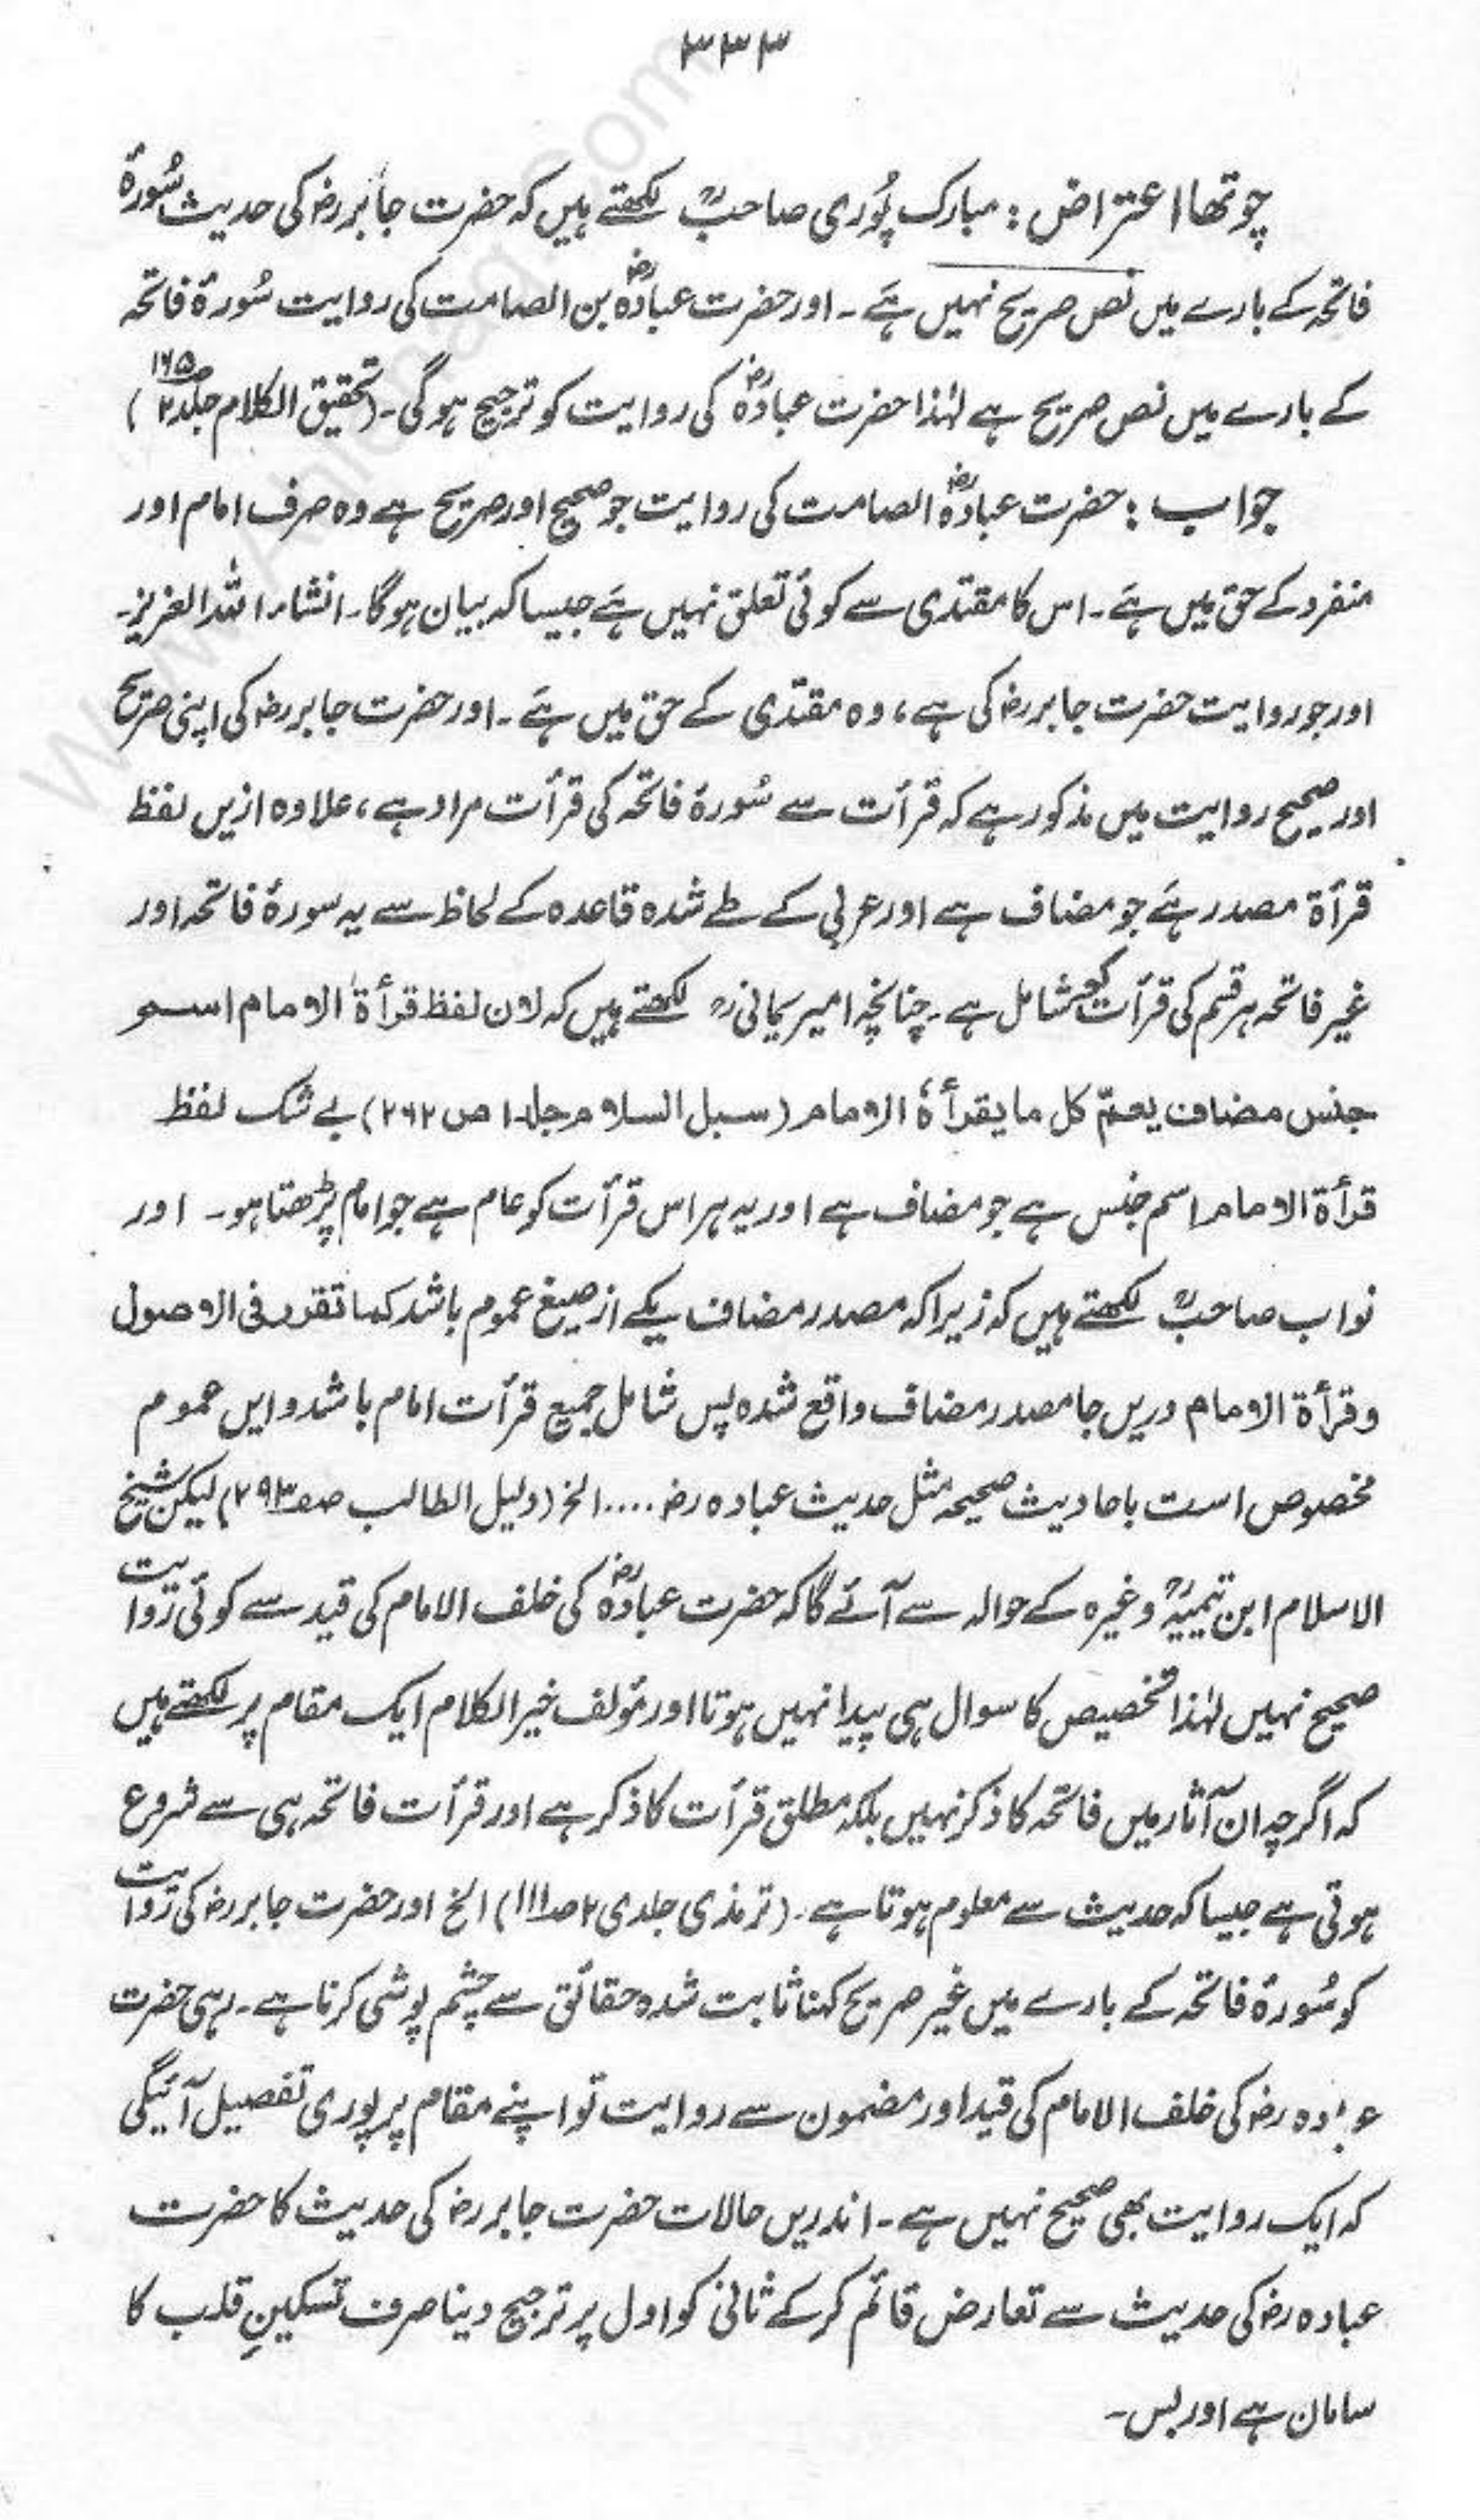 ۳۳۳
چوتھا اعتراض : مبارک پُوری صاحبؒ لکھتے ہیں کہ حضرت جابر رض کی حدیث سُورۂ
فاتحہ کے بارے میں نص صریح نہیں ہَے ۔ اور حضرت عبادہؓ بن الصامت کی روایت سُورۂ فاتحہ
کے بارے میں نص صریح ہے لہٰذا حضرت عبادہؓ کی روایت کو ترجیح ہوگی ۔ (تحقیق الکلام جلد ۲ ص ۱۶۵)
جواب : حضرت عبادہؓ الصامت کی روایت جو صحیح اور صریح ہے وہ صرف امام اور
منفرد کے حق میں ہَے ۔ اس کا مقتدی سے کوئی تعلق نہیں ہَے جیسا کہ بیان ہوگا ۔ انشاء اللہ العزیز ۔
اور جو روایت حضرت جابر رض کی ہے ، وہ مقتدی کے حق میں ہَے ۔ اور حضرت جابر رض کی اپنی صریح
اور صحیح روایت میں مذکور ہے کہ قرأت سے سُورۂ فاتحہ کی قرأت مراد ہے ، علاوہ ازیں لفظ
قرأۃ مصدر ہَے جو مضاف ہے اور عربی کے طے شدہ قاعدہ کے لحاظ سے یہ سورۂ فاتحہ اور
غیر فاتحہ ہر قسم کی قرأت کو شامل ہے ۔ چنانچہ امیر یمانیؒ لکھتے ہیں کہ لان لفظ قرأۃ الامام اسم
جنس مضاف یعمّ کل ما یقرأہٗ الامام (سبل السلام جلد ا ص ۲۶۲) بے شک لفظ
قرأۃ الامام اسم جنس ہے جو مضاف ہے اور یہ ہر اس قرأت کو عام ہے جو امام پڑھتا ہو ۔ اور
نواب صاحبؒ لکھتے ہیں کہ زیرا کہ مصدر مضاف یکے از صیغ عموم باشد کما تقرر فی الاصول
وقرأۃ الامام دریں جا مصدر مضاف واقع شدہ پس شامل جمیع قرأت امام باشد و ایں عموم
مخصوص است باحادیث صحیحہ مثل حدیث عبادہ رض .... الخ (دلیل الطالب صفہ ۲۹۳) لیکن شیخ
الاسلام ابن تیمیہؒ وغیرہ کے حوالہ سے آئے گا کہ حضرت عبادہؓ کی خلف الامام کی قید سے کوئی روایت
صحیح نہیں لہٰذا تخصیص کا سوال ہی پیدا نہیں ہوتا اور مؤلف خیر الکلام ایک مقام پر لکھتے ہیں
کہ اگرچہ ان آثار میں فاتحہ کا ذکر نہیں بلکہ مطلق قرأت کا ذکر ہے اور قرأت فاتحہ ہی سے شروع
ہوتی ہے جیسا کہ حدیث سے معلوم ہوتا ہے ۔ (ترمذی جلدی ۲ صد ۱۱۱) الخ اور حضرت جابر رض کی روایت
کو سُورۂ فاتحہ کے بارے میں غیر صریح کہنا ثابت شدہ حقائق سے چشم پوشی کرنا ہے ۔ رہی حضرت
عبادہ رض کی خلف الامام کی قید اور مضمون سے روایت تو اپنے مقام پر پوری تفصیل آئیگی
کہ ایک روایت بھی صحیح نہیں ہے ۔ اندریں حالات حضرت جابر رض کی حدیث کا حضرت
عبادہ رض کی حدیث سے تعارض قائم کرکے ثانی کو اول پر ترجیح دینا صرف تسکینِ قلب کا
سامان ہے اور بس ۔